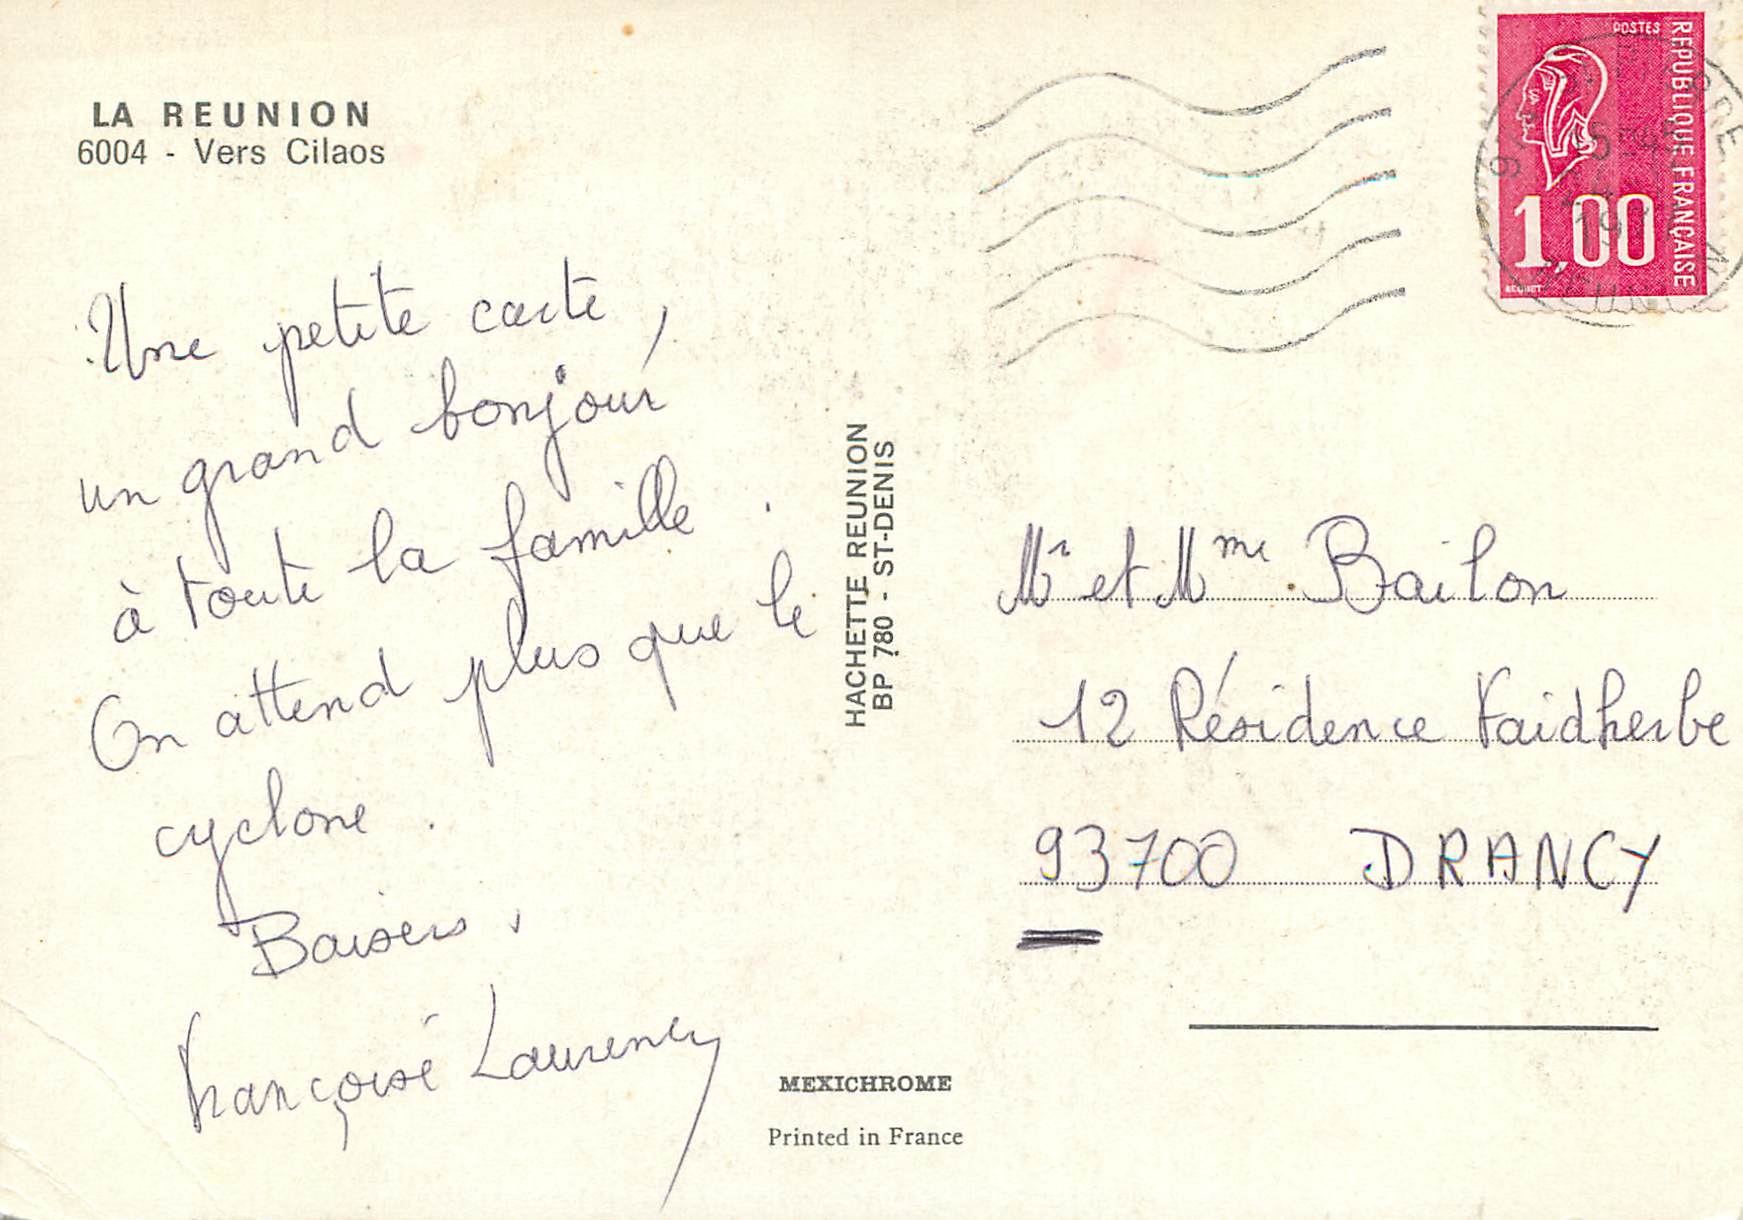 LA REUNION
6004 - Vers Cilaos
Une petite carte,
un grand bonjour
à toute la famille.
On attend plus que le
cyclone.
Baisers,
Françoise Laurency
HACHETTE REUNION
BP 780 - ST-DENIS
MEXICHROME
Printed in France
POSTES
REPUBLIQUE FRANÇAISE
1,00
BEQUET
Mr et Mme Bailon
12 Résidence Faidherbe
93700 DRANCY